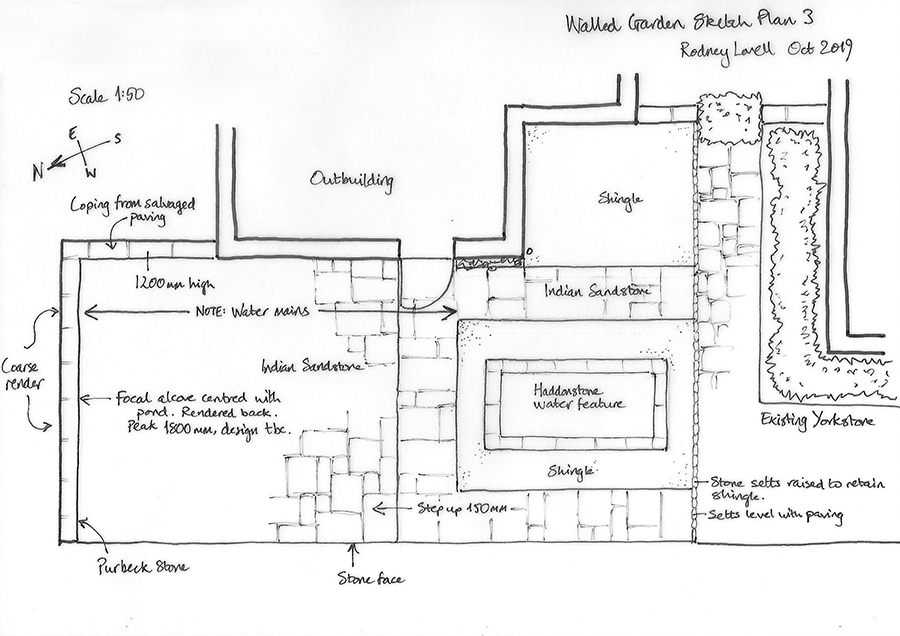 Walled Garden Sketch Plan 3
Rodney Lovell Oct 2019
Scale 1:50
E
S
N
W
Outbuilding
Coping from salvaged
paving
Shingle
1200mm high
Indian Sandstone
NOTE: Water mains
Coarse
render
Indian Sandstone
Focal alcove centred with
pond. Rendered back.
Peak 1800mm, design tbc.
Haddonstone
water feature
Existing Yorkstone
Shingle
Stone setts raised to retain
shingle.
Step up 150mm
Setts level with paving
Purbeck Stone
Stone face